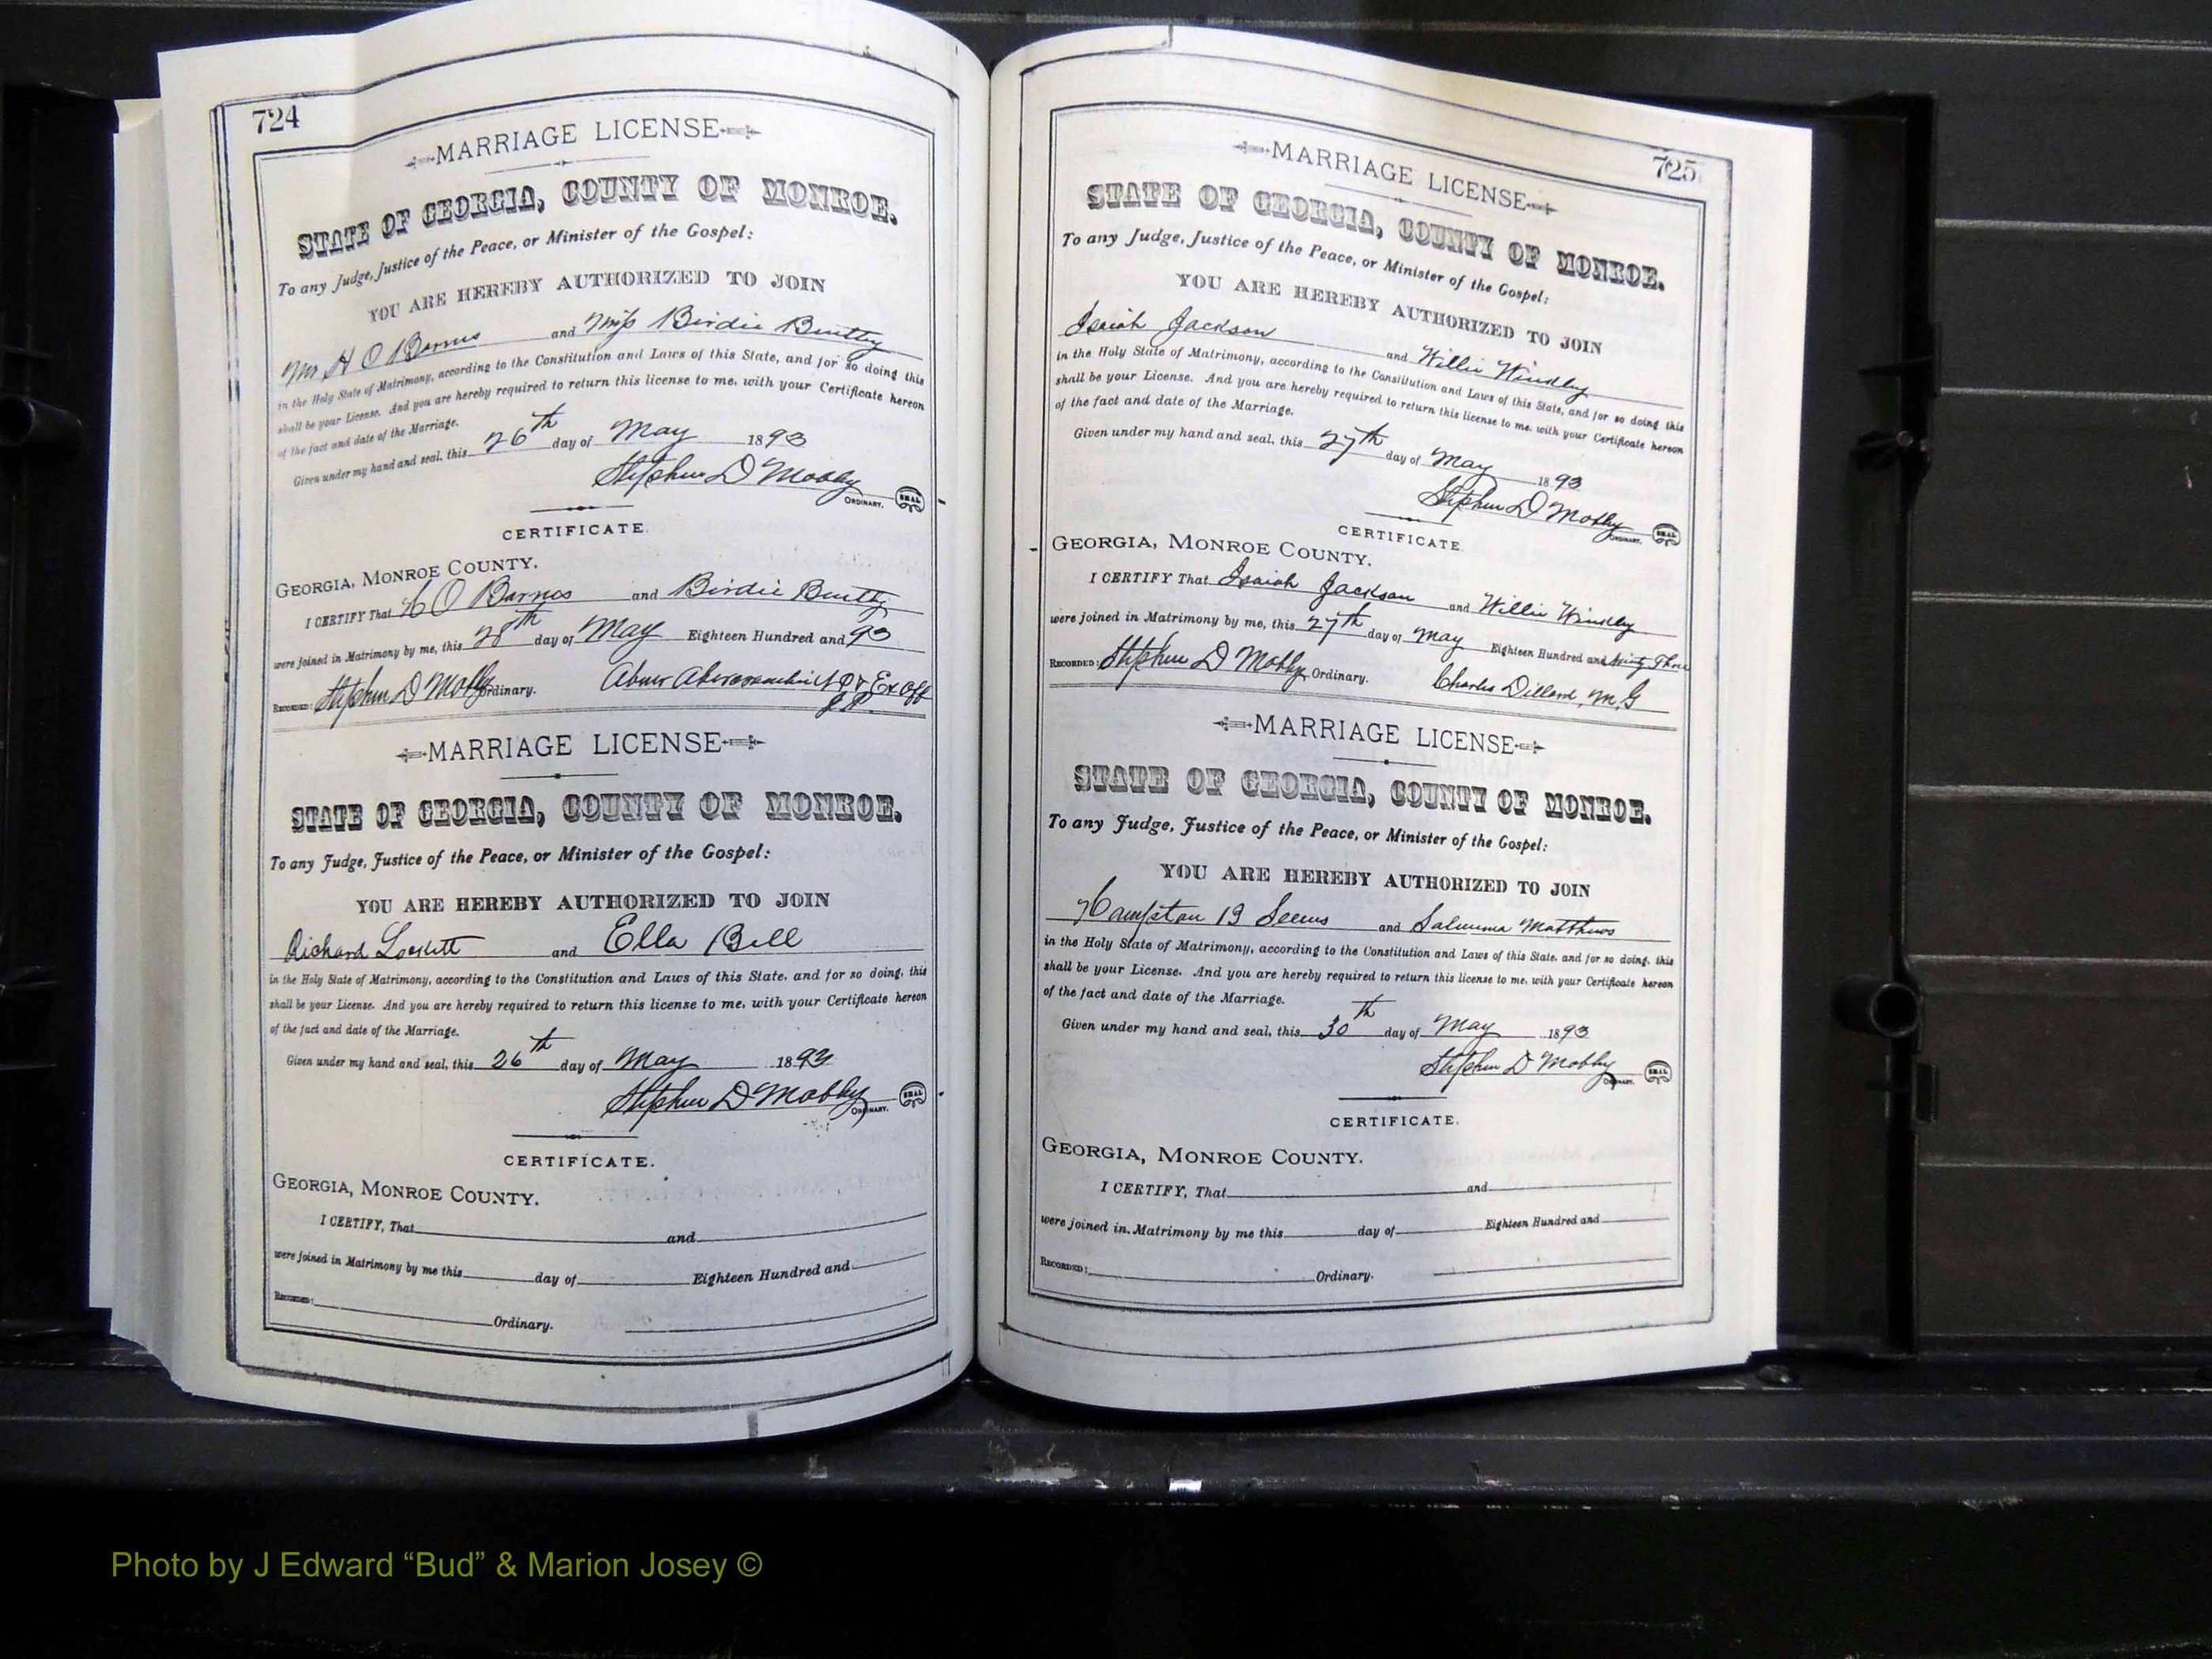 724
MARRIAGE LICENSE
STATE OF GEORGIA, COUNTY OF MONROE.
To any Judge, Justice of the Peace, or Minister of the Gospel:
YOU ARE HEREBY AUTHORIZED TO JOIN
Mr H O Barnes and Miss Birdie
in the Holy State of Matrimony, according to the Constitution and Laws of this State, and for so doing this
shall be your License. And you are hereby required to return this license to me, with your Certificate hereon
of the fact and date of the Marriage.
Given under my hand and seal, this 26th day of May 1893
Stephen D Mobley
ORDINARY. SEAL
CERTIFICATE.
GEORGIA, MONROE COUNTY.
I CERTIFY That H O Barnes and Birdie
were joined in Matrimony by me, this 28th day of May Eighteen Hundred and 93
RECORDED: Stephen D Mobley Ordinary. Abner & Ex off
J.P.
MARRIAGE LICENSE
STATE OF GEORGIA, COUNTY OF MONROE.
To any Judge, Justice of the Peace, or Minister of the Gospel:
YOU ARE HEREBY AUTHORIZED TO JOIN
Richard Lockett and Ella Bell
in the Holy State of Matrimony, according to the Constitution and Laws of this State, and for so doing, this
shall be your License. And you are hereby required to return this license to me, with your Certificate hereon
of the fact and date of the Marriage.
Given under my hand and seal, this 26th day of May 1893
Stephen D Mobley
ORDINARY. SEAL
CERTIFICATE.
GEORGIA, MONROE COUNTY.
I CERTIFY, That and
were joined in Matrimony by me this day of Eighteen Hundred and
RECORDED: Ordinary.
725
MARRIAGE LICENSE
STATE OF GEORGIA, COUNTY OF MONROE.
To any Judge, Justice of the Peace, or Minister of the Gospel:
YOU ARE HEREBY AUTHORIZED TO JOIN
Isaiah Jackson and Willie Windley
in the Holy State of Matrimony, according to the Constitution and Laws of this State, and for so doing this
shall be your License. And you are hereby required to return this license to me, with your Certificate hereon
of the fact and date of the Marriage.
Given under my hand and seal, this 27th day of May 1893
Stephen D Mobley
ORDINARY. SEAL
CERTIFICATE.
GEORGIA, MONROE COUNTY.
I CERTIFY That Isaiah Jackson and Willie Windley
were joined in Matrimony by me, this 27th day of May Eighteen Hundred and Ninty Three
RECORDED: Stephen D Mobley Ordinary. Charles Dillard, M.G
MARRIAGE LICENSE
STATE OF GEORGIA, COUNTY OF MONROE.
To any Judge, Justice of the Peace, or Minister of the Gospel:
YOU ARE HEREBY AUTHORIZED TO JOIN
Hampton B and Matthews
in the Holy State of Matrimony, according to the Constitution and Laws of this State, and for so doing, this
shall be your License. And you are hereby required to return this license to me, with your Certificate hereon
of the fact and date of the Marriage.
Given under my hand and seal, this 30th day of May 1893
Stephen D Mobley
ORDINARY. SEAL
CERTIFICATE.
GEORGIA, MONROE COUNTY.
I CERTIFY, That and
were joined in Matrimony by me this day of Eighteen Hundred and
RECORDED: Ordinary.
Photo by J Edward “Bud” & Marion Josey ©